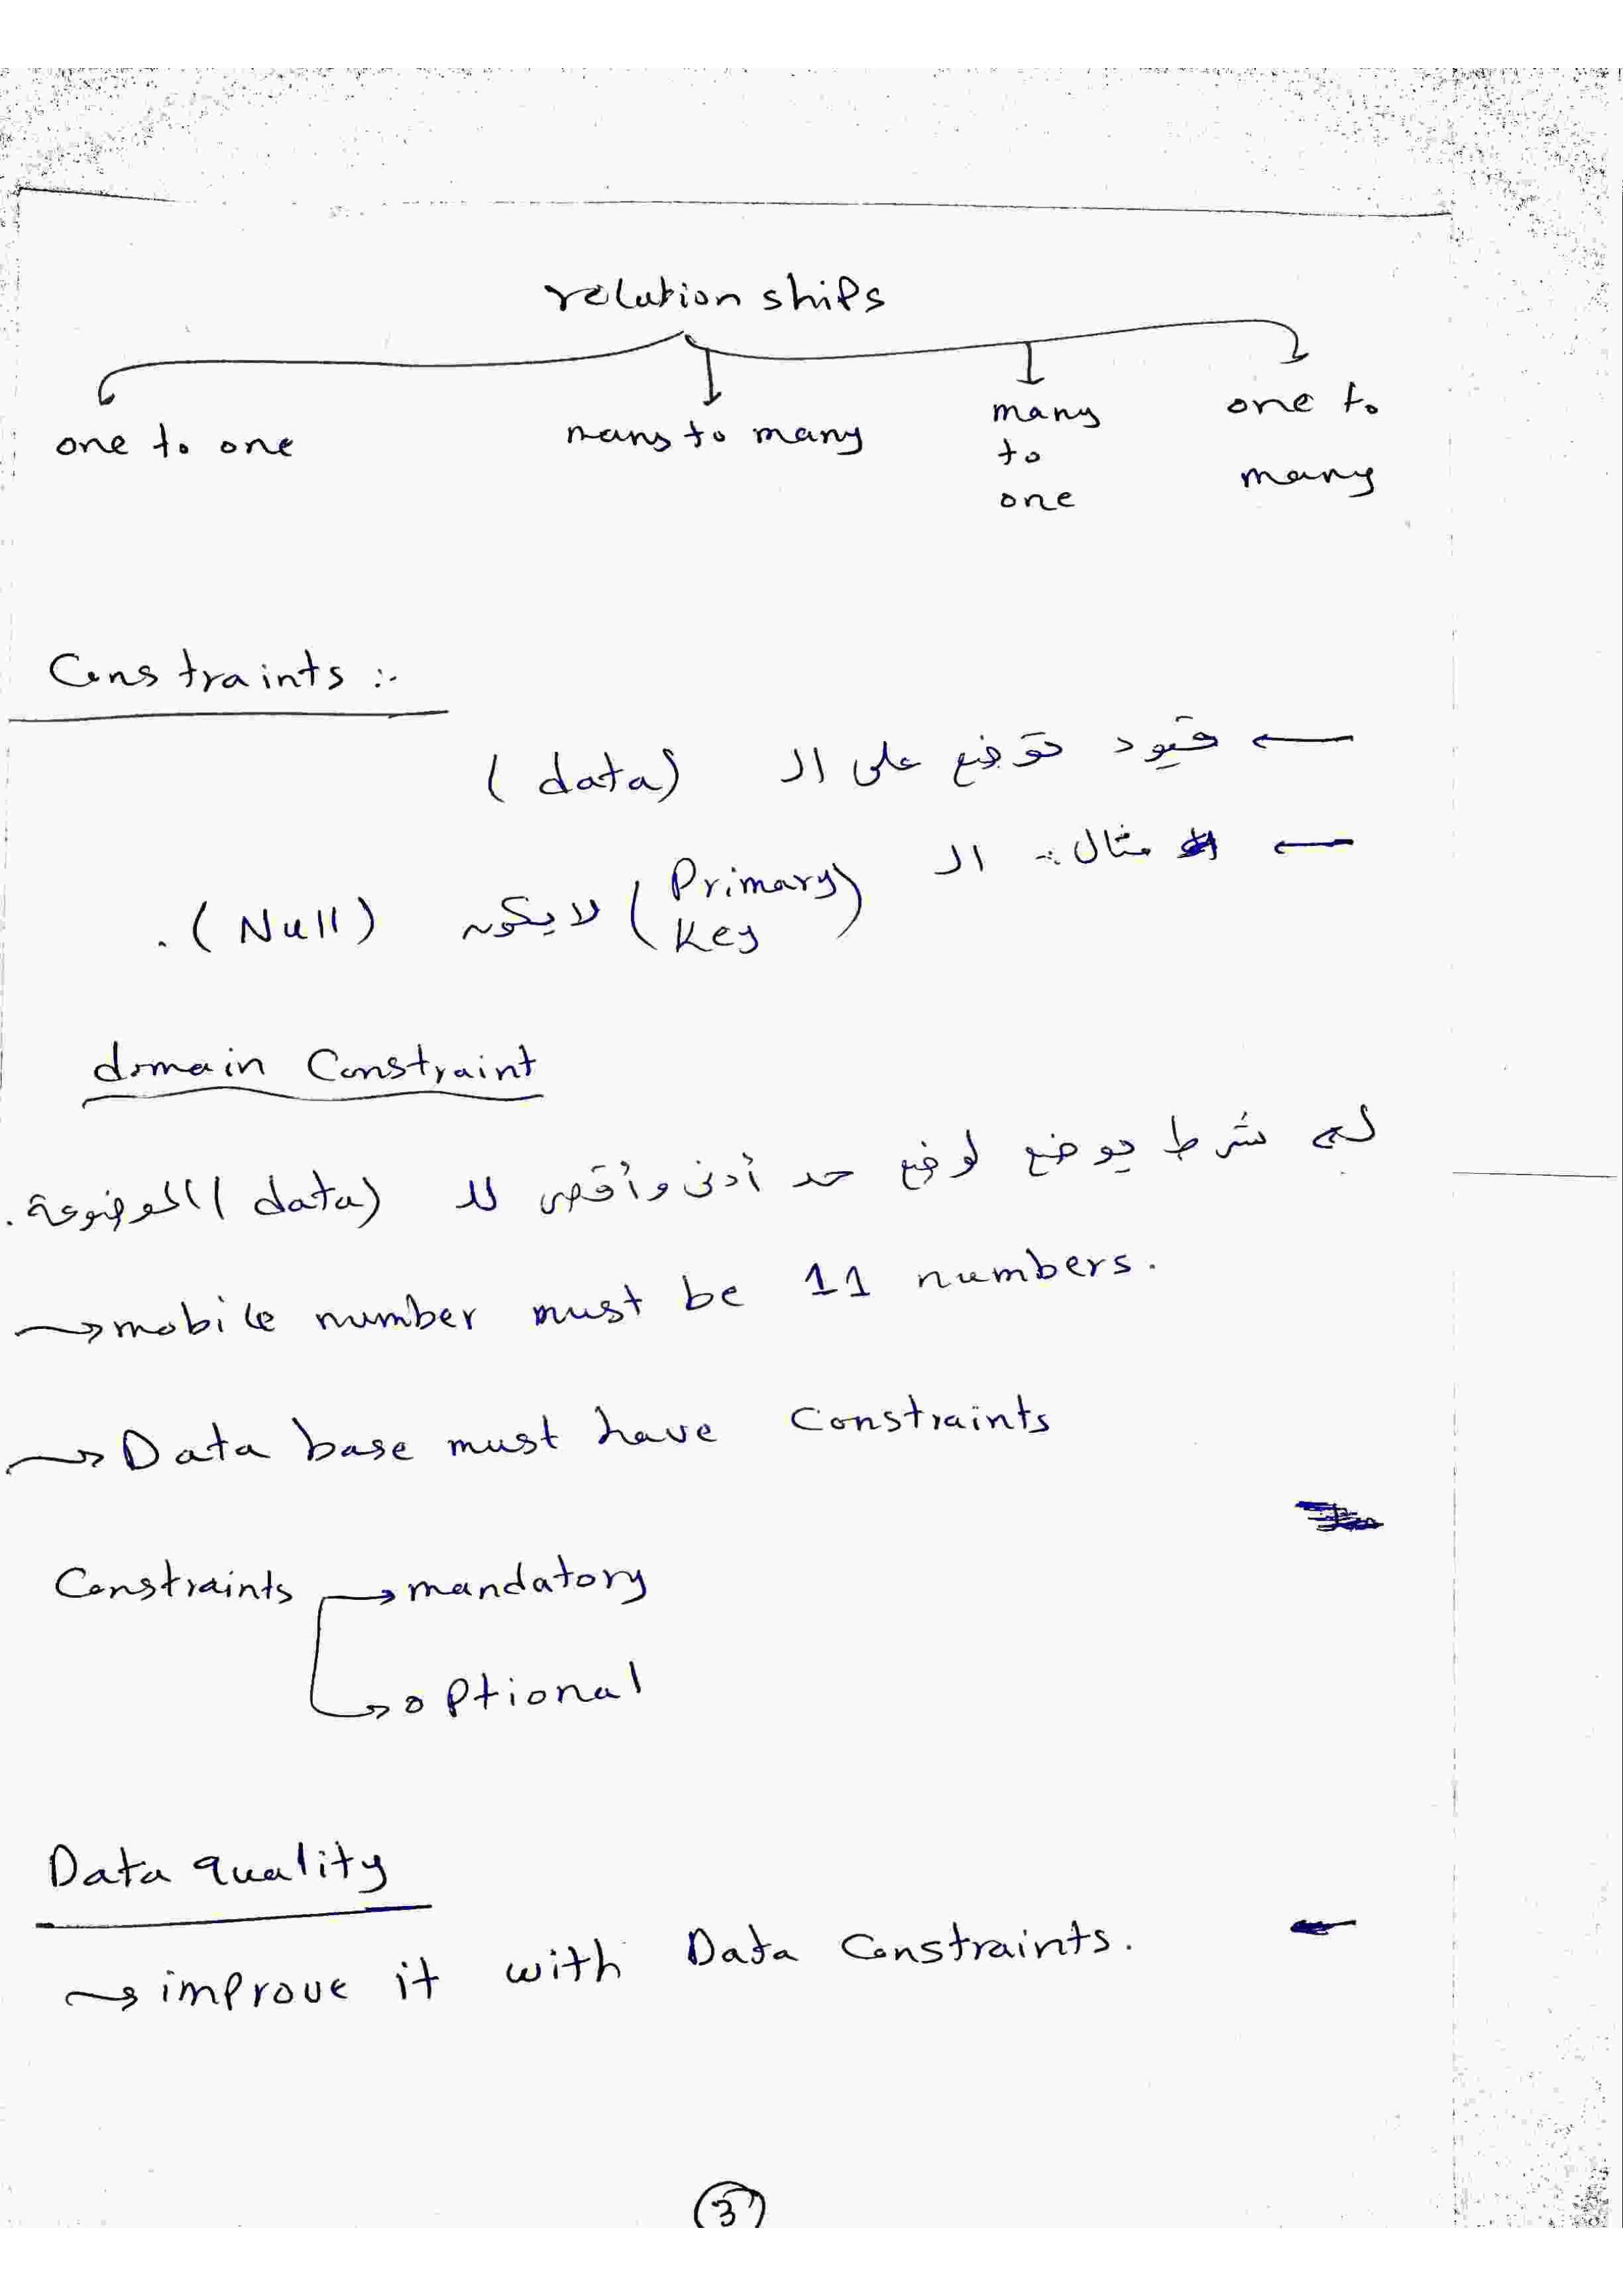 relation ships
one to one
many to many
many
to
one
one to
many
Constraints :-
← قيود توضع على الـ (data)
← مثال :- الـ (Primary
Key) لا يكون (Null).
domain Constraint
شرط يوضع لوضع حد أدنى وأقصى للـ (data) الموضوعة.
→ mobile number must be 11 numbers.
→ Data base must have Constraints
Constraints → mandatory
→ optional
Data quality
→ improve it with Data Constraints.
3